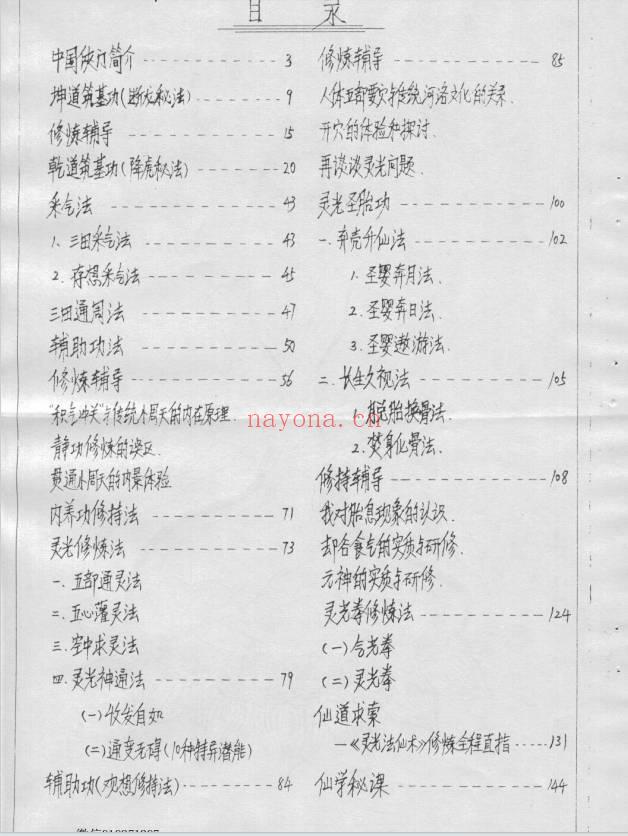 目 录
中国侠门简介 ---------- 3
坤道筑基功(斩龙秘法) ------ 9
修炼辅导 ---------- 15
乾道筑基功(降虎秘法) ------ 20
采气法 ---------- 43
1、三田采气法 ---------- 43
2、存想采气法 ---------- 45
三田通周法 ---------- 47
辅助功法 ---------- 50
修炼辅导 ---------- 56
"积气冲关"与传统小周天的内在原理.
静功修炼的误区.
贯通小周天的内景体验
内养功修持法 ---------- 71
灵光修炼法 ---------- 73
一.五部通灵法
二.五心灌灵法
三.空中求灵法
四.灵光神通法 ---------- 79
(一)收发自如
(二)通变无碍(10种特异潜能)
辅助功(观想修持法) ------ 84
修炼辅导 ---------- 85
人体五部要穴与传统河洛文化的关系.
开穴的体验和探讨.
再谈谈灵光问题.
灵光圣胎功 ---------- 100
一.弃壳升仙法 ---------- 102
1.圣婴奔月法.
2.圣婴奔日法.
3.圣婴遨游法.
二.长生久视法 ---------- 105
1.脱胎换骨法.
2.焚身化骨法.
修持辅导 ---------- 108
我对胎息现象的认识.
却谷食气的实质与研修.
元神的实质与研修.
灵光拳修炼法 ---------- 124
(一)合光拳
(二)灵光拳
仙道求索
—《灵光法仙术》修炼全程直指 ----- 131
仙学秘课 ---------- 144
nayona.cn